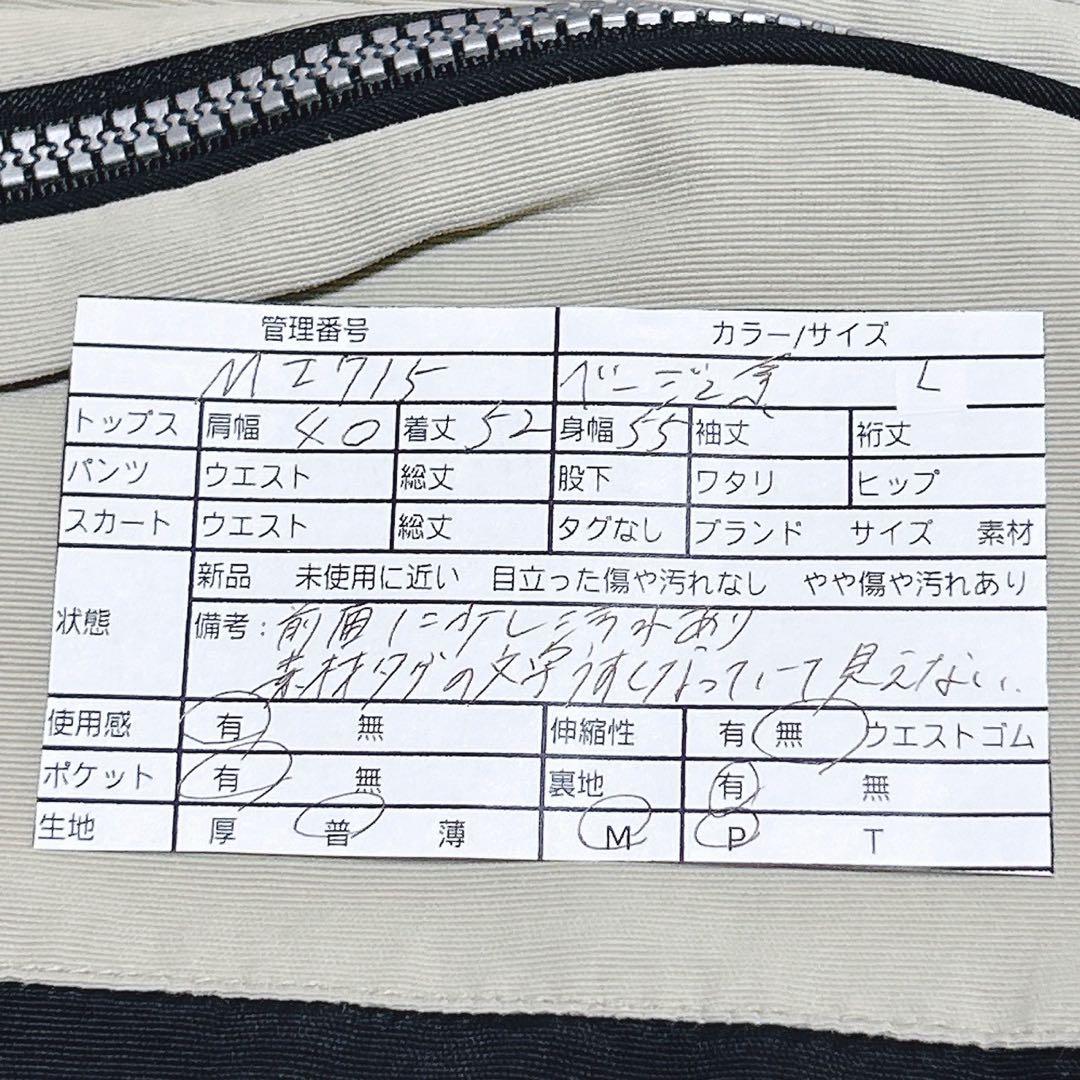 管理番号 カラー/サイズ
MI715 ベージュ L
トップス 肩幅 40 着丈 52 身幅 55 袖丈 裄丈
パンツ ウエスト 総丈 股下 ワタリ ヒップ
スカート ウエスト 総丈 タグなし ブランド サイズ 素材
状態 新品 未使用に近い 目立った傷や汚れなし やや傷や汚れあり
備考: 前面に少し汚れあり
素材タグの文字うすくなっていて見えない.
使用感 有 無 伸縮性 有 無 ウエストゴム
ポケット 有 無 裏地 有 無
生地 厚 普 薄 M P T